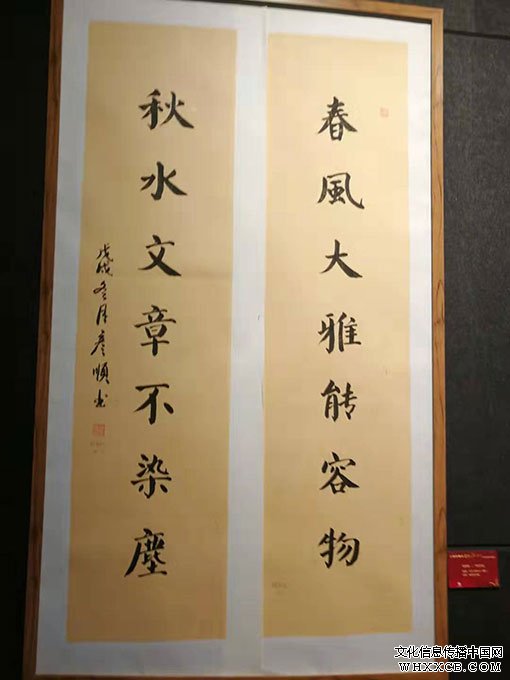 春風大雅能容物
秋水文章不染塵
戊戌冬月彦順书
文化信息传播中国网
WWW.WHXXCB.COM